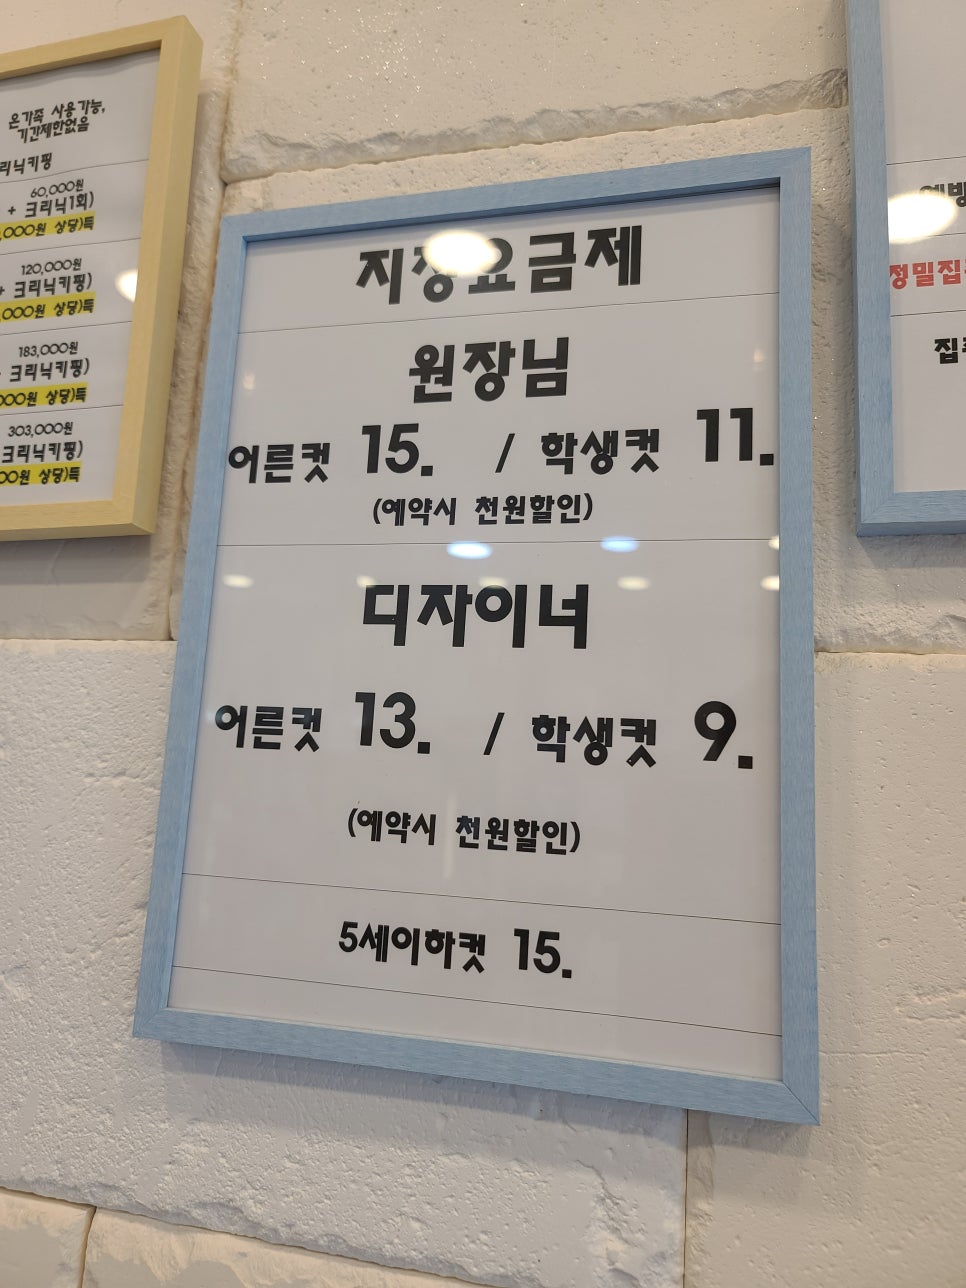 온가족 사용가능,
기간제한없음
리닉키핑
60,000원
+ 크리닉1회)
,000원 상당)득
120,000원
+ 크리닉키핑)
,000원 상당)득
183,000원
크리닉키핑)
000원 상당)득
303,000원
크리닉키핑)
00원 상당)득
지정요금제
원장님
어른컷 15. / 학생컷 11.
(예약시 천원할인)
디자이너
어른컷 13. / 학생컷 9.
(예약시 천원할인)
5세이하컷 15.
정밀집
집